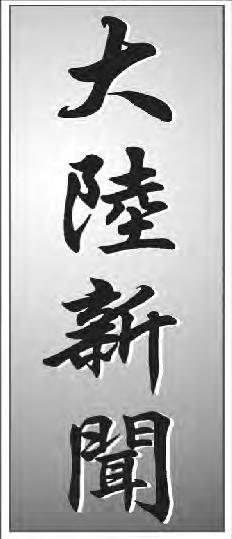 大陸新聞